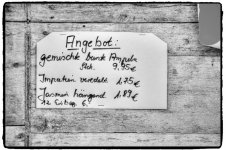 Angebot:
gemischte bunte Ampeln
Stck. 9,95€
Impatien veredelt 1,75€
Jasmin hängend 1,89€